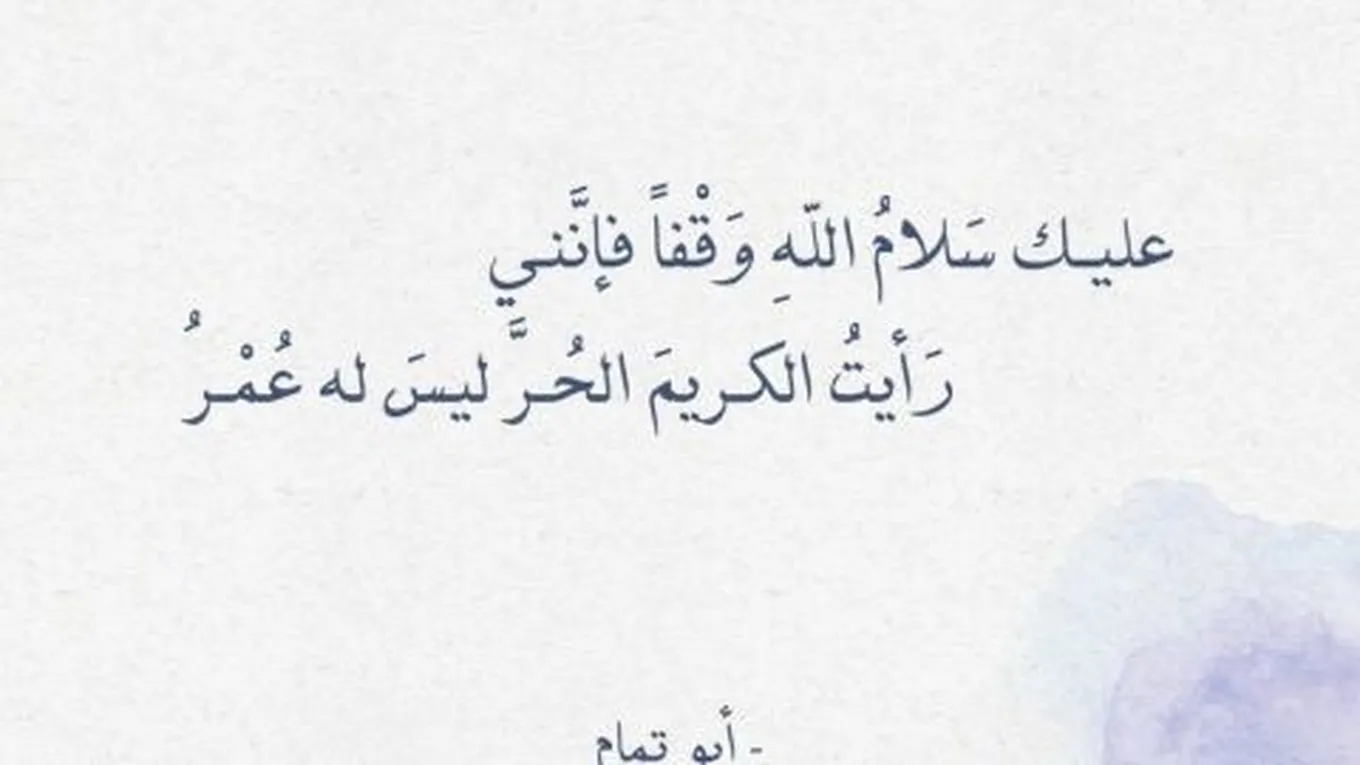 عليـك سَلامُ اللّهِ وَقْفاً فإنَّنـي
رَأيتُ الكـريمَ الحُـرَّ ليسَ له عُمْـرُ
- أبو تمام